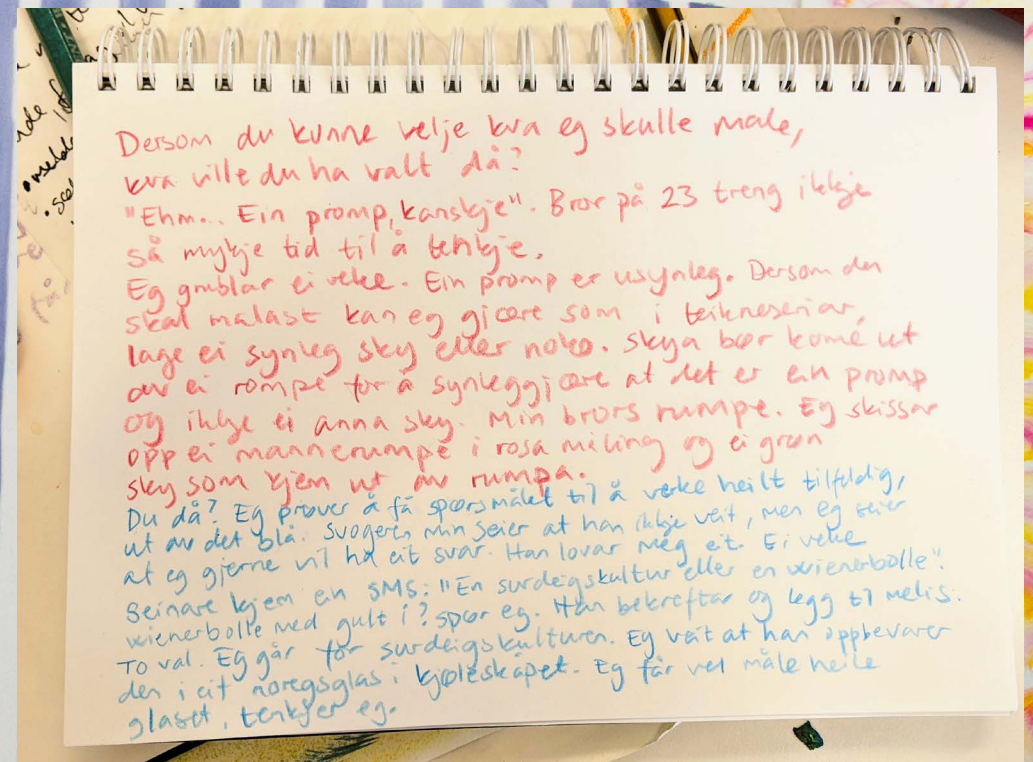 Dersom du kunne velje kva eg skulle male,
kva ville du ha valt då?
"Ehm... Ein promp, kanskje". Bror på 23 treng ikkje
så mykje tid til å tenkje.
Eg grublar ei veke. Ein promp er usynleg. Dersom den
skal malast kan eg gjere som i teikneseriar,
lage ei synleg sky eller noko. Skya bør kome ut
av ei rompe for å synleggjere at det er ein promp
og ikkje ei anna sky. Min brors rumpe. Eg skissar
opp ei mannerumpe i rosa måling og ei grøn
sky som kjem ut av rumpa.
Du då? Eg prøver å få spørsmålet til å verke heilt tilfeldig,
ut av det blå. Svogeren min seier at han ikkje veit, men eg seier
at eg gjerne vil ha eit svar. Han lovar meg eit. Ei veke
seinare kjem en SMS: "En surdeigskultur eller en wienerbolle".
Wienerbolle med gult i? spør eg. Han bekreftar og legg til melis.
To val. Eg går for surdeigskulturen. Eg veit at han oppbevarer
den i eit noregsglas i kjøleskapet. Eg får vel måle heile
glaset, tenkjer eg.